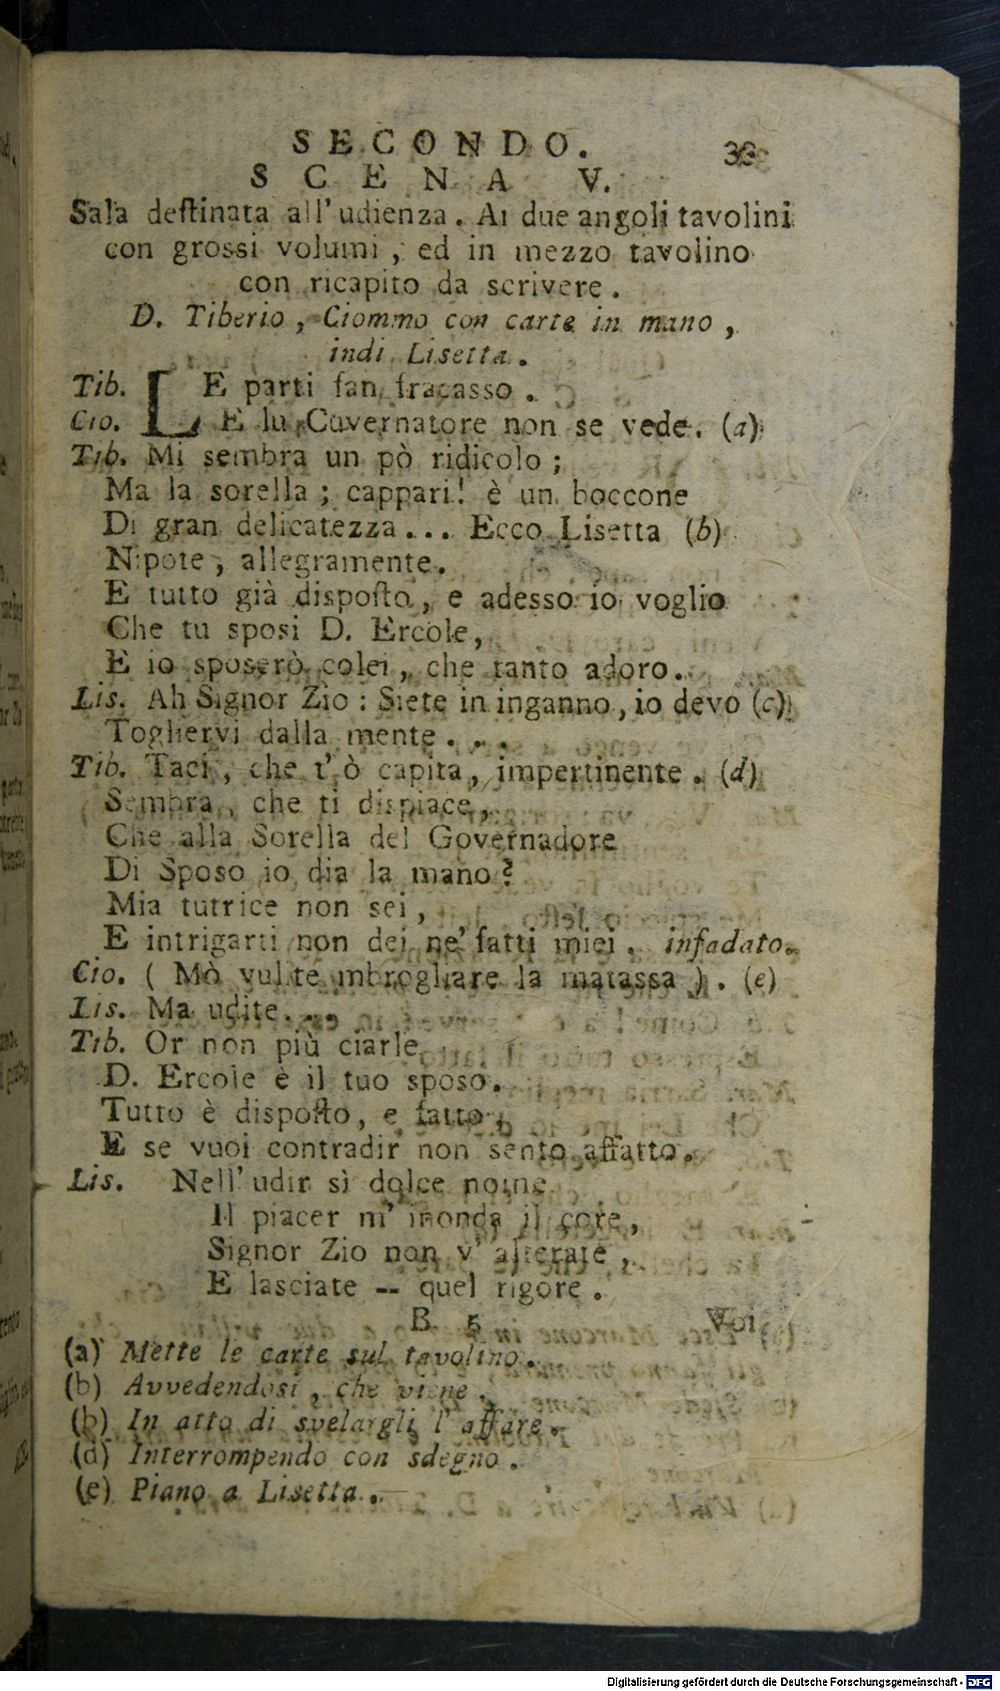 SECONDO. 33
SCENA V.
Sala deſtinata all' udienza. Ai due angoli tavolini
con grossi volumi, ed in mezzo tavolino
con ricapito da scrivere.
D. Tiberio, Ciommo con carte in mano,
indi Lisetta.
Tib. LE parti fan fracasso.
Cio. E lu Guvernatore non se vede. (a)
Tib. Mi sembra un pò ridicolo;
Ma la sorella; cappari! è un boccone
Di gran delicatezza... Ecco Lisetta (b)
Nipote, allegramente.
E tutto già dispoſto, e adesso io voglio
Che tu sposi D. Ercole,
E io sposerò colei, che tanto adoro.
Lis. Ah Signor Zio: Siete in inganno, io devo (c)
Togliervi dalla mente...
Tib. Taci, che t' ò capita, impertinente. (d)
Sembra, che ti dispiace,
Che alla Sorella del Governadore
Di Sposo io dia la mano?
Mia tutrice non sei,
E intrigarti non dei ne' fatti miei. infadato.
Cio. (Mò vulite mbrogliare la matassa). (e)
Lis. Ma udite...
Tib. Or non più ciarle
D. Ercole è il tuo sposo.
Tutto è dispoſto, e fatto,
E se vuoi contradir non sento affatto.
Lis. Nell' udir sì dolce nome
Il piacer m' inonda il core,
Signor Zio non v' alterate,
E lasciate -- quel rigore.
B 5 Voi
(a) Mette le carte sul tavolino.
(b) Avvedendosi, che viene.
(b) In atto di svelargli l' affare.
(d) Interrompendo con sdegno.
(e) Piano a Lisetta.
Digitalisierung gefördert durch die Deutsche Forschungsgemeinschaft - DFG